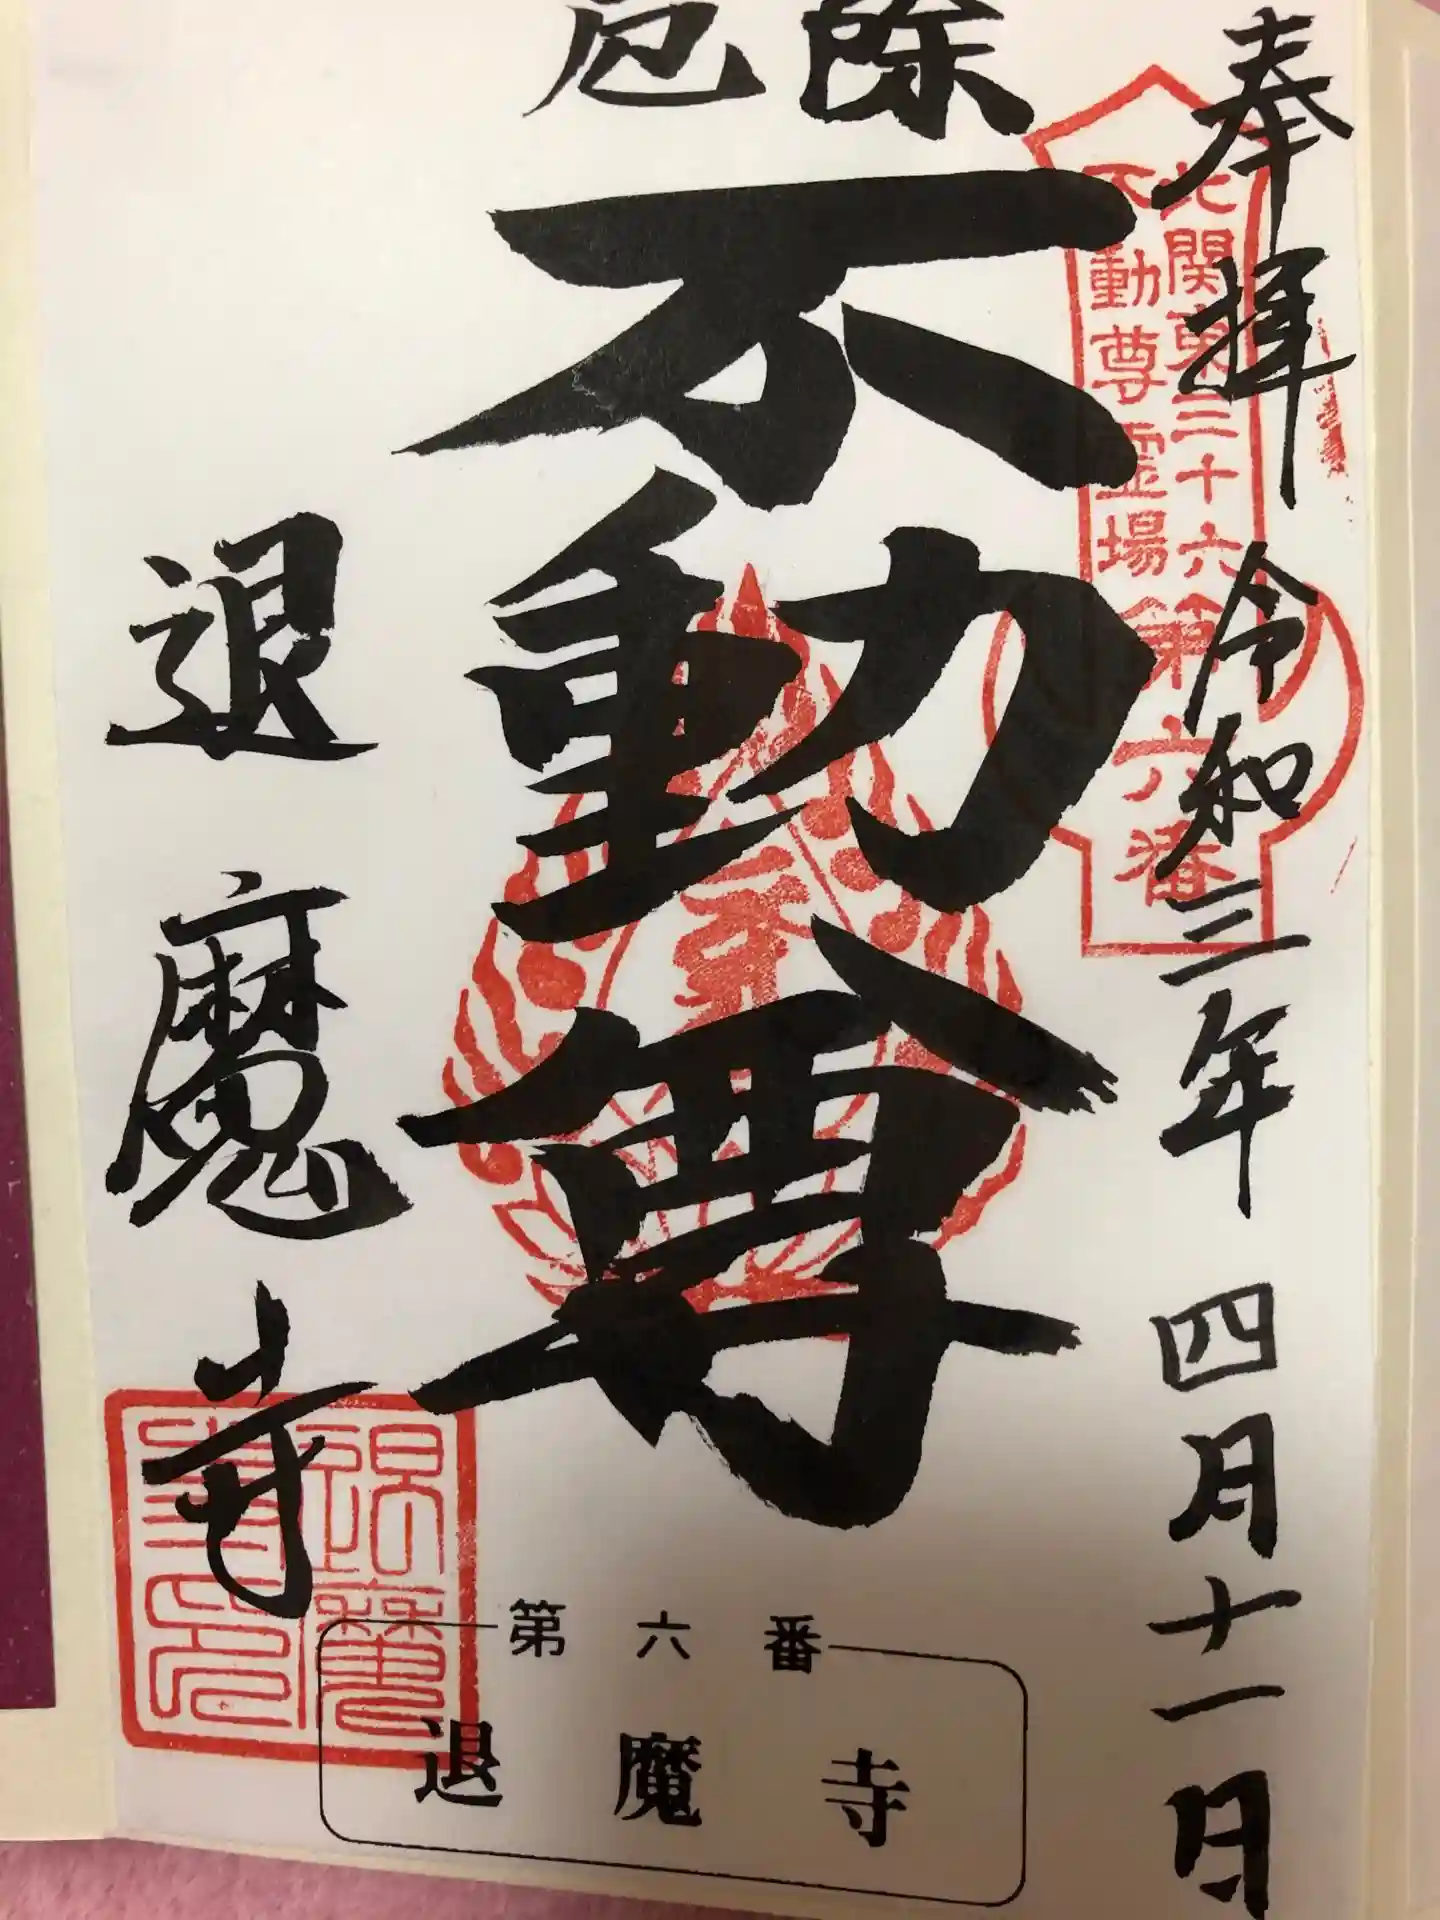 奉拝 令和三年 四月十一日
北関東三十六
不動尊霊場
第六番
厄除
不動尊
退魔寺
第六番
退魔寺